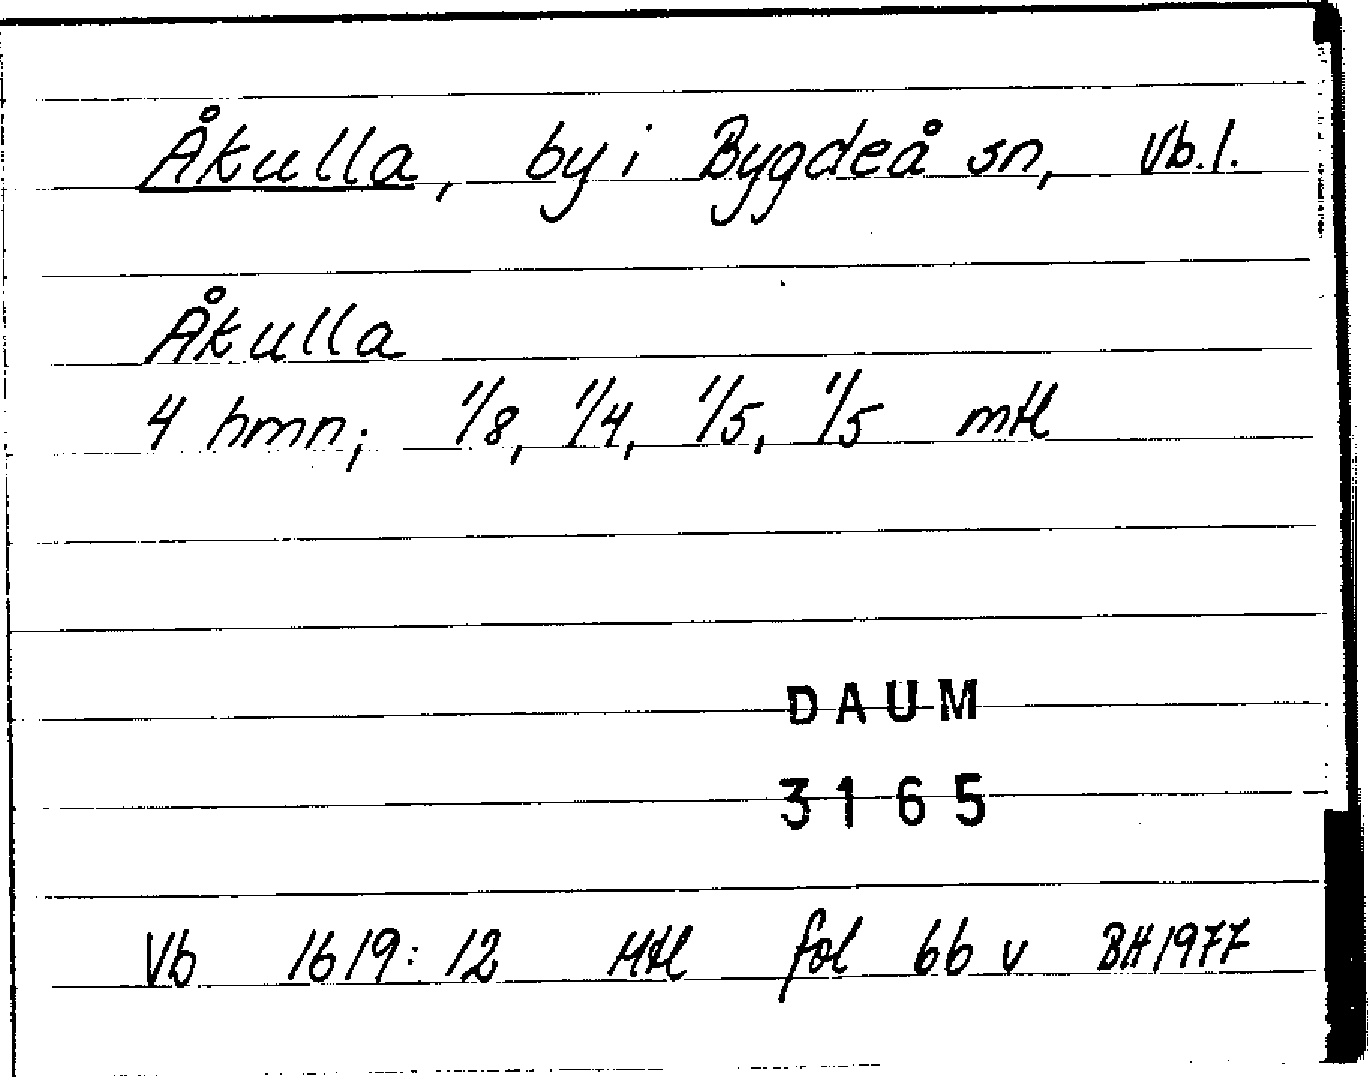 Åkulla, by i Bygdeå sn, Vb.l.
Åkulla
4 hmn; 1/8, 1/4, 1/5, 1/5 mtl
DAUM
3165
Vb 1619:12 Mtl fol 66 v BH 1977